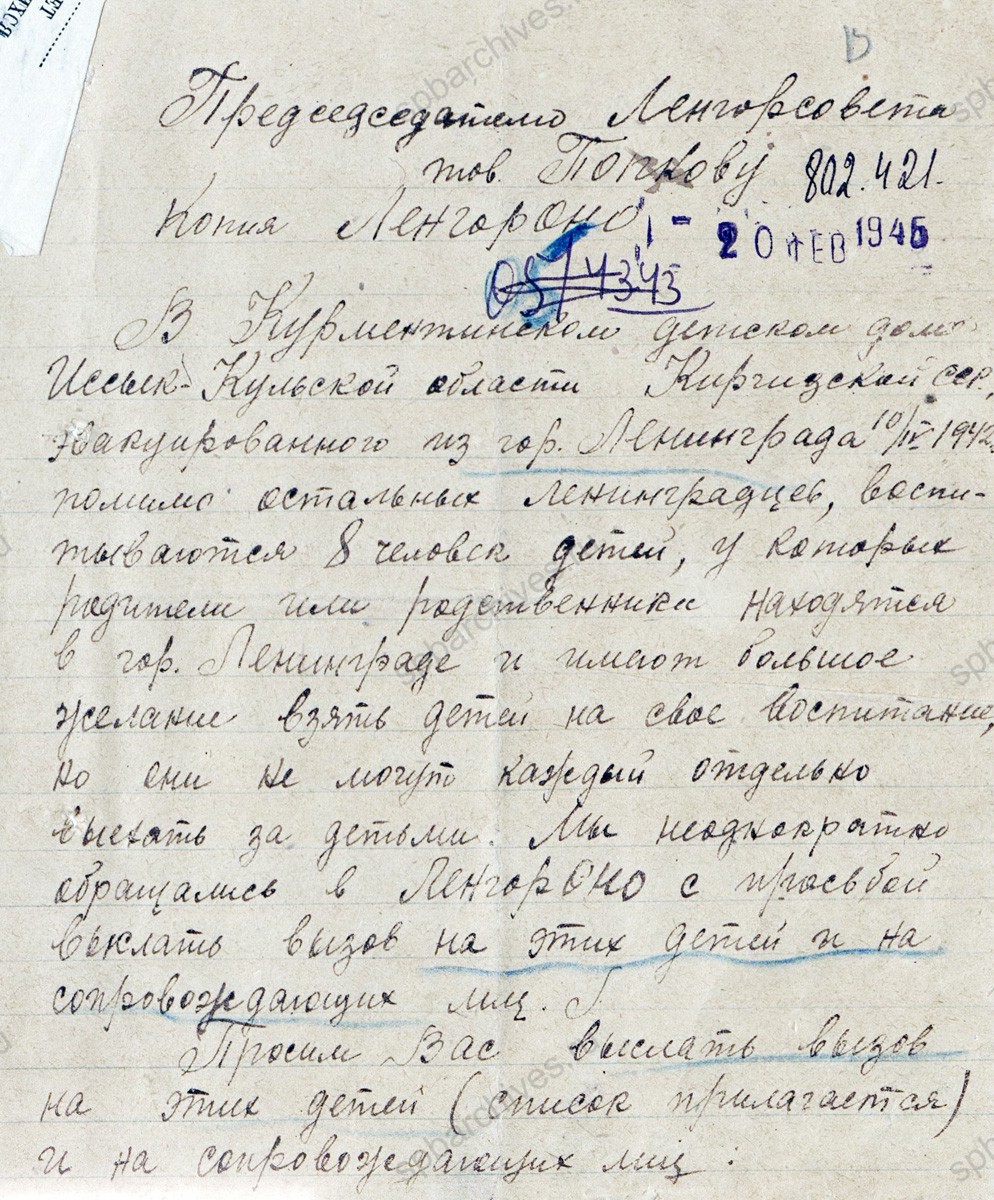 Председседателю Ленгорсовета
тов. Попкову 802.421.
Копия ЛенгорОНО
20 ФЕВ 1945
4345
В Курментинском детском доме
Иссык-Кульской области Киргизской ССР,
эвакуированного из гор. Ленинграда 10/IV 1942
помимо остальных Ленинградцев, воспи-
тываются 8 человек детей, у которых
родители или родственники находятся
в гор. Ленинграде и имеют большое
желание взять детей на свое воспитание,
но они не могут каждый отдельно
выехать за детьми. Мы неоднократно
обращались в ЛенгорОНО с просьбой
выслать вызов на этих детей и на
сопровождающих лиц.
Просим Вас выслать вызов
на этих детей (список прилагается)
и на сопровождающих лиц.
spbarchives.ru